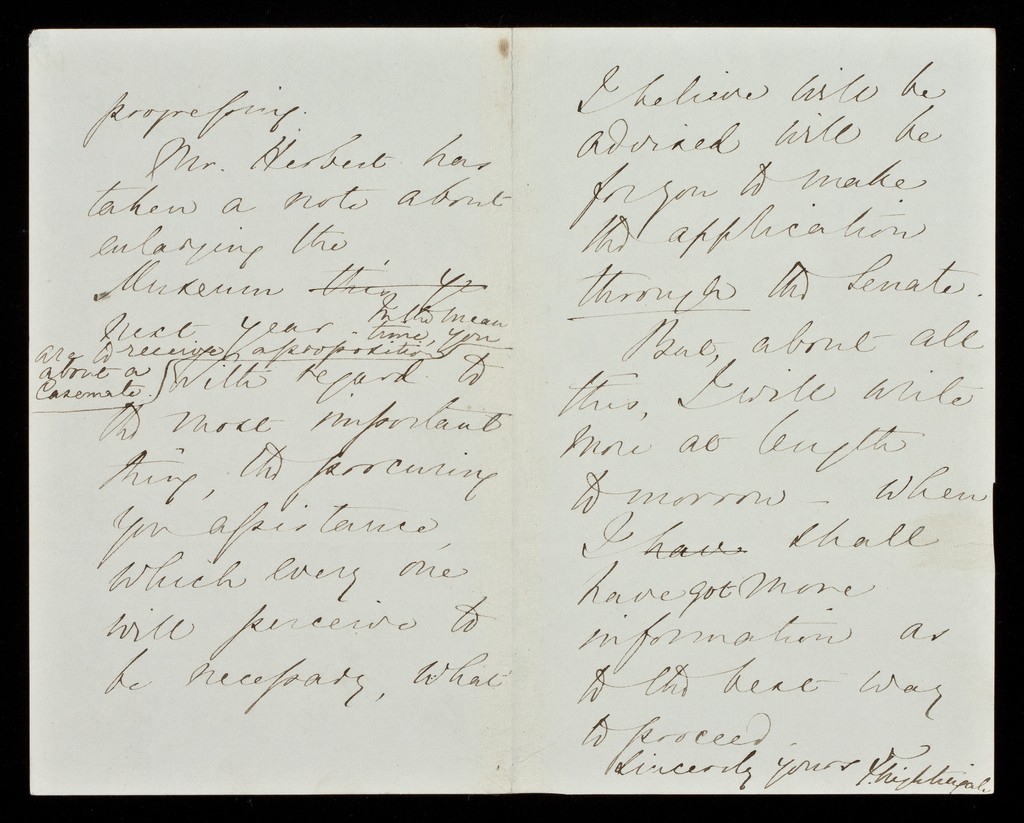 progressing.
Mr. Herbert has
taken a note about
enlarging the
Museum this yr
next year. In the mean
time, you
are to receive a proposition
about a
Casemate.
With regard to
the most important
thing, the procuring
you assistance,
which every one
will perceive to
be necessary, what
I believe will be
advised will be
for you to make
the application
through the Senate.
But, about all
this, I will write
more at length
to morrow – when
I have shall
have got more
information as
to the best way
to proceed.
Sincerely yours F. Nightingale